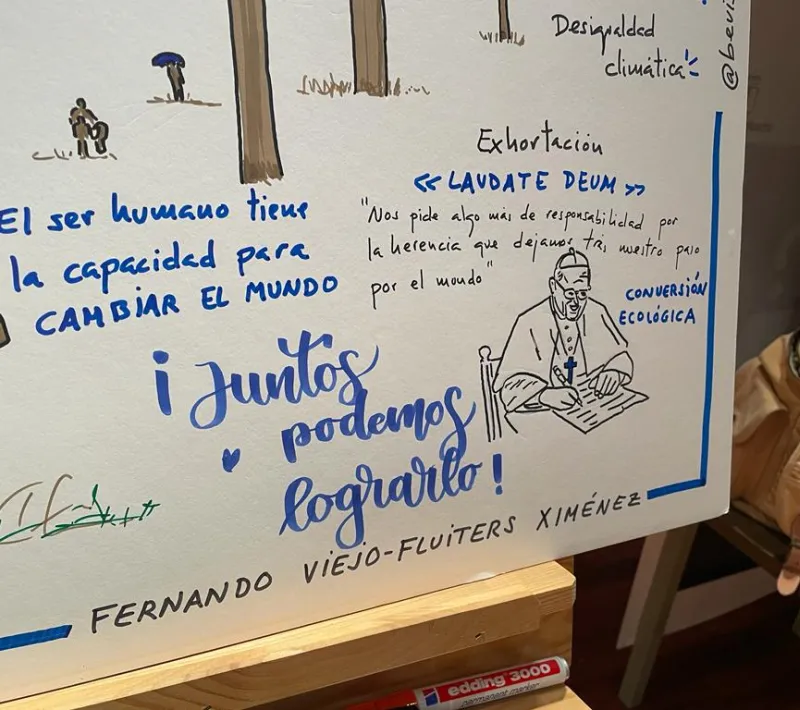 Desigualdad
climática
@bevi
Exhortación
« LAUDATE DEUM »
"Nos pide algo más de responsabilidad por
la herencia que dejamos tras nuestro paso
por el mundo"
CONVERSIÓN
ECOLÓGICA
El ser humano tiene
la capacidad para
CAMBIAR EL MUNDO
¡Juntos
podemos
lograrlo!
FERNANDO VIEJO-FLUITERS XIMÉNEZ
edding 3000
permanent marker